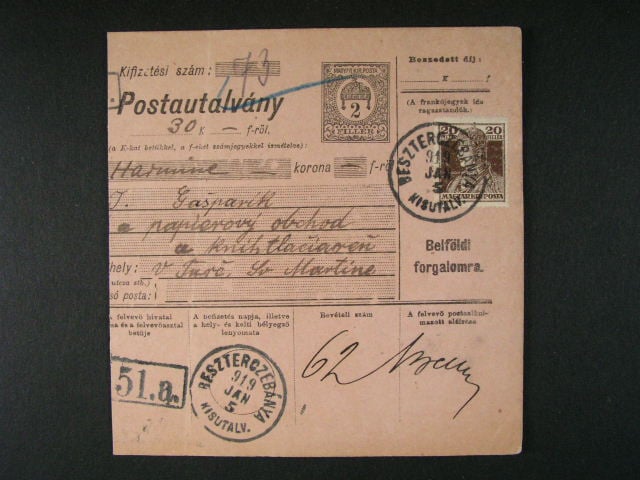 Kifizetési szám: 173
Postautalvány
30 K — f-ről.
(a K-kat betűkkel, a f-eket számjegyekkel ismételve)
Harmine korona — f-ről
MAGYAR KIR. POSTA
2
FILLÉR
Beszedett díj:
K f
(A frankójegyek ide ragasztandók.)
20 20
MAGYAR KIR. POSTA
BESZTERCZEBÁNYA
919
JAN
5
KISUTALV.
Belföldi
forgalomra.
J. Gašparik
a papierový obchod
a knihtlačiareň
hely: v Turč. Sv Martine
utcza stb.)
só posta:
A felvevő hivatal
a és a felvevőasztal
betűje
A befizetés napja, illetve
a hely- és kelti bélyegző
lenyomata
Bevételi szám
A felvevő postaalkalmazott aláírása
51.a.
BESZTERCZEBÁNYA
919
JAN
5
KISUTALV.
62